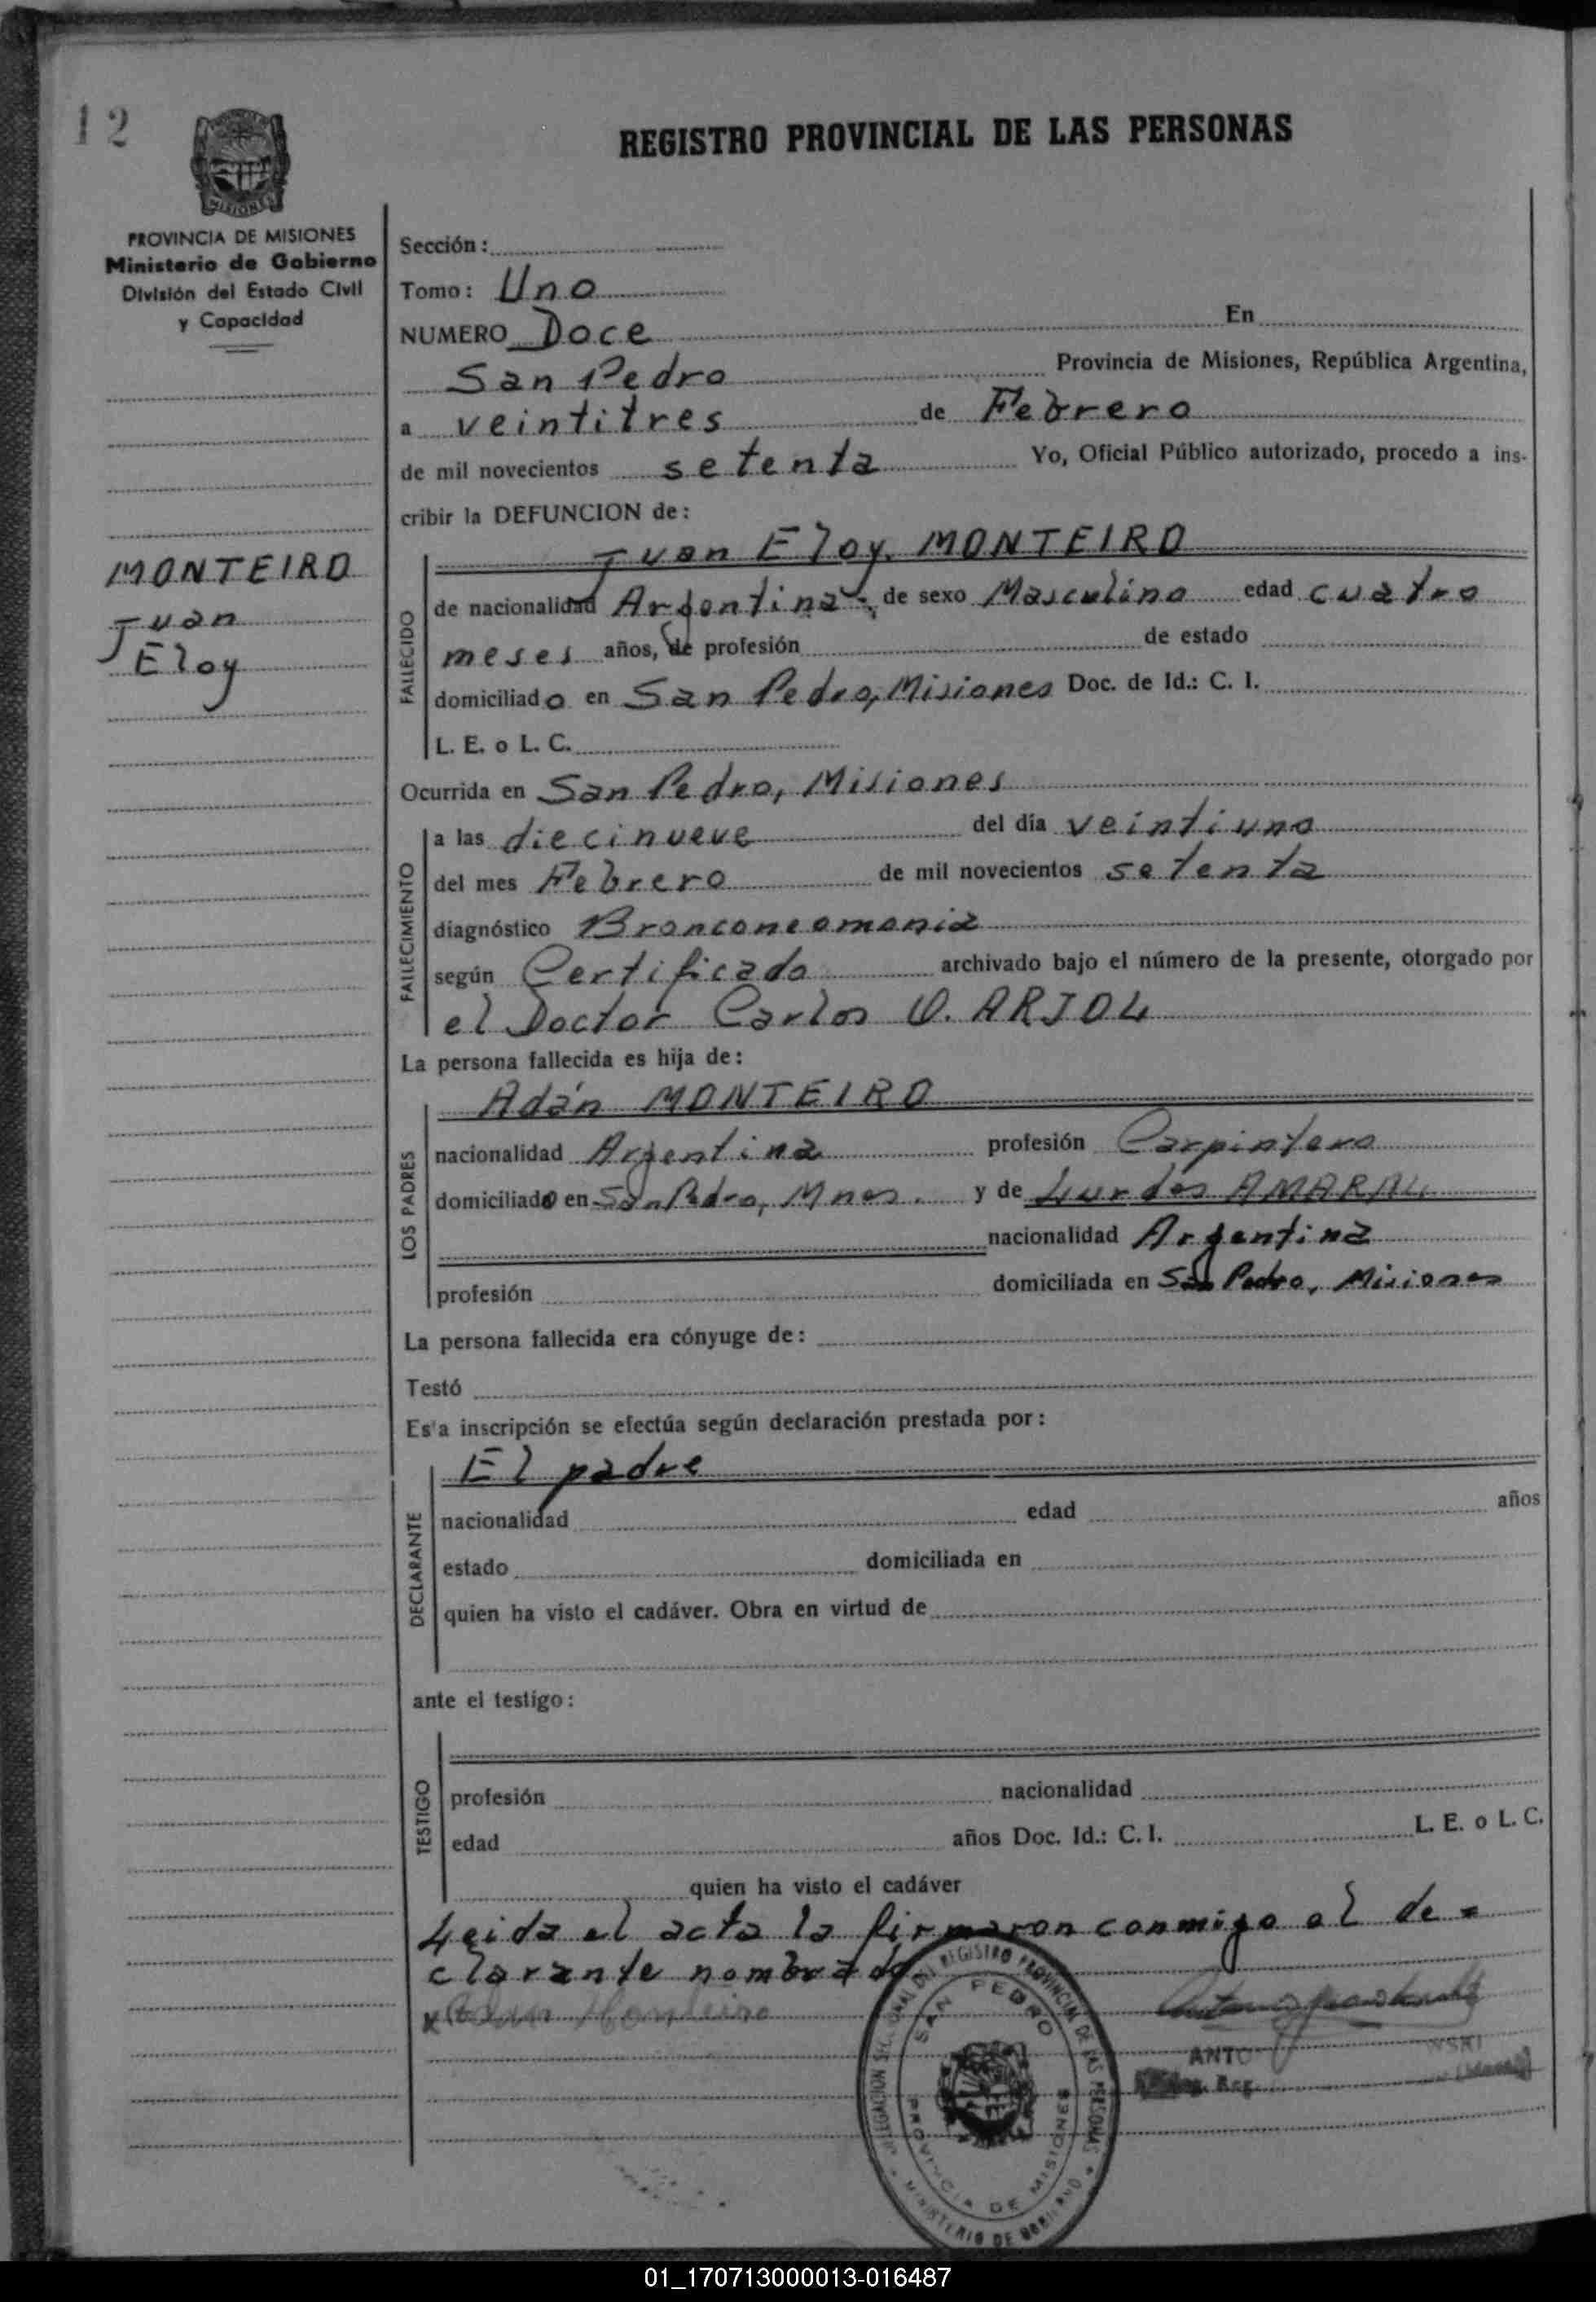 12
REGISTRO PROVINCIAL DE LAS PERSONAS
MISIONES
PROVINCIA DE MISIONES
Ministerio de Gobierno
División del Estado Civil
y Capacidad
MONTEIRO
Juan
Eloy
Sección:
Tomo: Uno
NUMERO Doce En
San Pedro Provincia de Misiones, República Argentina,
a veintitres de Febrero
de mil novecientos setenta Yo, Oficial Público autorizado, procedo a ins-
cribir la DEFUNCION de:
FALLECIDO
Juan Eloy MONTEIRO
de nacionalidad Argentina de sexo Masculino edad cuatro
meses años, de profesión de estado
domiciliado en San Pedro, Misiones Doc. de Id.: C. I.
L. E. o L. C.
Ocurrida en San Pedro, Misiones
FALLECIMIENTO
a las diecinueve del día veintiuno
del mes Febrero de mil novecientos setenta
diagnóstico Bronconeomonia
según Certificado archivado bajo el número de la presente, otorgado por
el Doctor Carlos O. ARJOL
La persona fallecida es hija de:
LOS PADRES
Adán MONTEIRO
nacionalidad Argentina profesión Carpintero
domiciliado en San Pedro, Mnes. y de Lurdes AMARAL
nacionalidad Argentina
profesión domiciliada en San Pedro, Misiones
La persona fallecida era cónyuge de:
Testó
Es'a inscripción se efectúa según declaración prestada por:
DECLARANTE
El padre
nacionalidad edad años
estado domiciliada en
quien ha visto el cadáver. Obra en virtud de
ante el testigo:
TESTIGO
profesión nacionalidad
edad años Doc. Id.: C. I. L. E. o L. C.
quien ha visto el cadáver
Leida el acta la firmaron conmigo el de=
clarante nombrado
x Adan Monteiro
REGISTRO PROVINCIAL DE LAS PERSONAS
SAN PEDRO
PROVINCIA DE MISIONES
MINISTERIO DE GOBIERNO
01_170713000013-016487